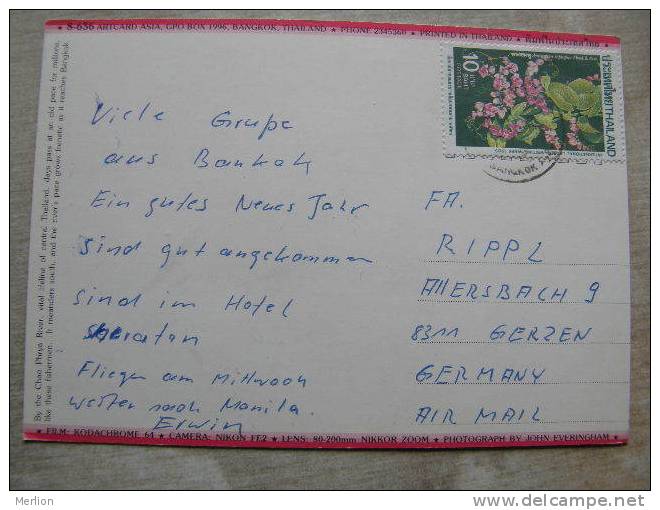 S-636 ARTCARD ASIA, GPO BOX 1996, BANGKOK, THAILAND ★ PHONE 2345360 ★ PRINTED IN THAILAND ★ พิมพ์ในประเทศไทย
By the Chao Phya River, vital lifeline of central Thailand, days pass at an old pace for millions,
like these fishermen. It meanders south, and the river's pace grows frenetic as it reaches Bangkok.
Viele Grüße
aus Bankok
Ein gutes Neues Jahr
sind gut angekommen
sind im Hotel
sheratan
Fliegen am Mittwoch
weiter nach Manila.
Erwin
10
บาท
BAHT
ประเทศไทย THAILAND
BANGKOK
FA.
RIPPL
AllERSBACH 9
8311 GERZEN
GERMANY
AIR MAIL
★ FILM: KODACHROME 64 ★ CAMERA: NIKON FE2 ★ LENS: 80-200mm NIKKOR ZOOM ★ PHOTOGRAPH BY JOHN EVERINGHAM ★
Merlion
http://www.delcampe.net